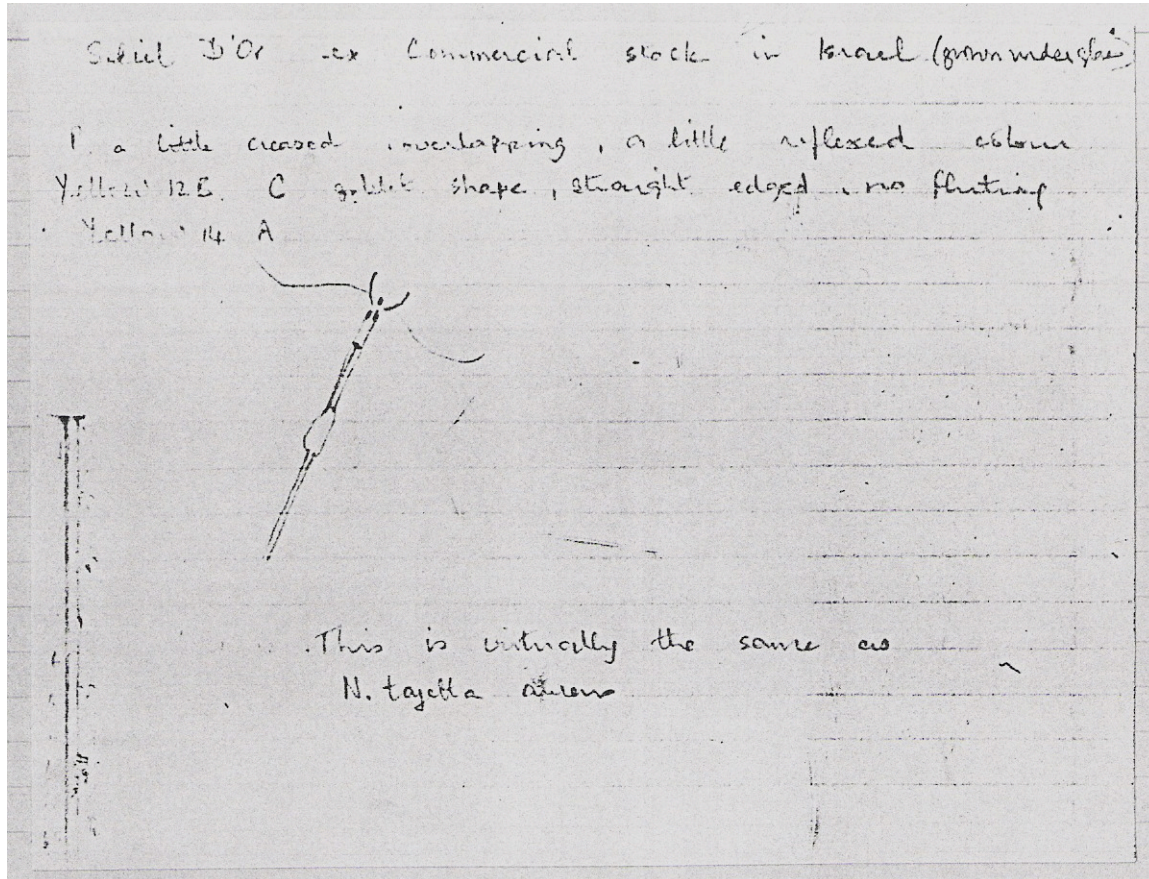 D'Or ex Commercial stock in Israel (grown under
P a little creased overlapping, a little reflexed colour
Yellow 12 C goblet shape, straight edged, no fluting
Yellow 14 A
This is virtually the same as
N. tazetta aureus